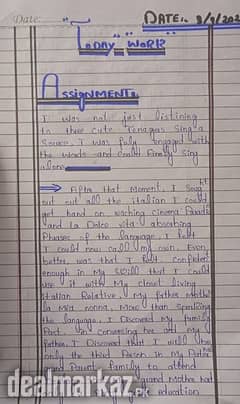 Date:
DATE:. 8/9/202
Today Work
Assignment:
I was not just listining
to these cute Tenagas Sing a
Source, I was fuly engaged with
the words and could Finaly Sing
alone
After that Moment, I Soug ht
out out all the italian I could
get hand on waching cinema Paradi
and La Dolce vita abso r bing
Phases of the language, I Felt
I could now call my own. Even
better, was that I Felt confident
enough in My Skill that I could
use it with My closet living
italian Relative. My father Mother
la Mia nonna. More than speaking
the language, I Discoved My family
Past. In conversing
Father. I Discoved that I will
only the third Person in My
Family to attend
Mother had
education
dealmarkaz
.Pk